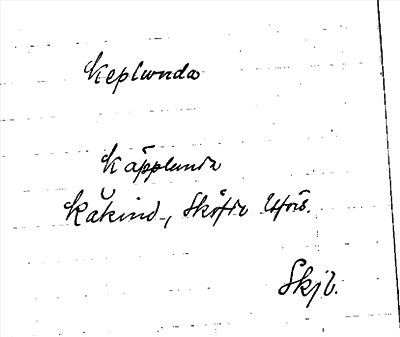 Keplunda
Käpplunda
Kåkind-, Sköfde
Skjb.